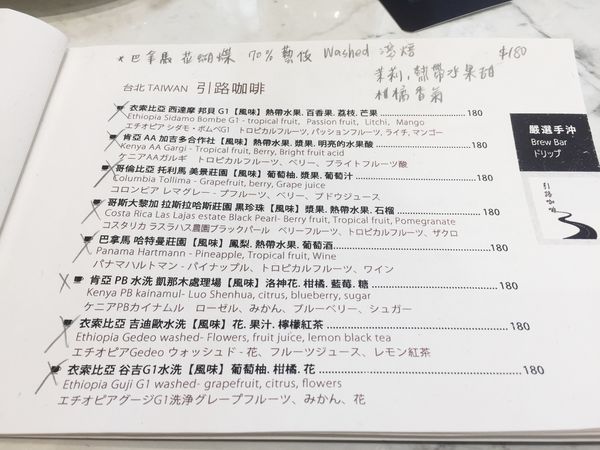 * 巴拿馬 花蝴蝶 70% 藝伎 Washed 淺焙 $180
茉莉,熱帶水果甜
柑橘香氣
台北 TAIWAN 引路咖啡
衣索比亞 西達摩 邦貝 G1【風味】熱帶水果. 百香果. 荔枝. 芒果 180
Ethiopia Sidamo Bombe G1 - tropical fruit, Passion fruit, Litchi, Mango
エチオピア シダモ・ボムベG1 トロピカルフルーツ, パッションフルーツ, ライチ, マンゴー
肯亞 AA 加吉多合作社【風味】熱帶水果. 漿果. 明亮的水果酸 180
Kenya AA Gargi - Tropical fruit, Berry, Bright fruit acid
ケニアAAガルギ トロピカルフルーツ、ベリー、ブライトフルーツ酸
哥倫比亞 托利馬 美景莊園【風味】葡萄柚. 漿果. 葡萄汁 180
Columbia Tollima - Grapefruit, berry, Grape juice
コロンビア レマグレー - プフルーツ、ベリー、ブドウジュース
哥斯大黎加 拉斯拉哈斯莊園 黑珍珠【風味】漿果. 熱帶水果. 石榴 180
Costa Rica Las Lajas estate Black Pearl- Berry fruit, Tropical fruit, Pomegranate
コスタリカ ラスラバス農園ブラックパール ベリーフルーツ、トロピカルフルーツ、ザクロ
巴拿馬 哈特曼莊園【風味】鳳梨. 熱帶水果. 葡萄酒 180
Panama Hartmann - Pineapple, Tropical fruit, Wine
パナマハルトマン - パイナップル、トロピカルフルーツ、ワイン
肯亞 PB 水洗 凱那木處理場【風味】洛神花. 柑橘. 藍莓. 糖 180
Kenya PB kainamul- Luo Shenhua, citrus, blueberry, sugar
ケニアPBカイナムル ローゼル、みかん、ブルーベリー、シュガー
衣索比亞 吉迪歐水洗【風味】花. 果汁. 檸檬紅茶 180
Ethiopia Gedeo washed- Flowers, fruit juice, lemon black tea
エチオピアGedeo ウォッシュド - 花、フルーツジュース、レモン紅茶
衣索比亞 谷吉G1水洗【風味】葡萄柚. 柑橘. 花 180
Ethiopia Guji G1 washed- grapefruit, citrus, flowers
エチオピアグージG1洗浄グレープフルーツ、みかん、花
嚴選手沖
Brew Bar
ドリップ
引路咖啡